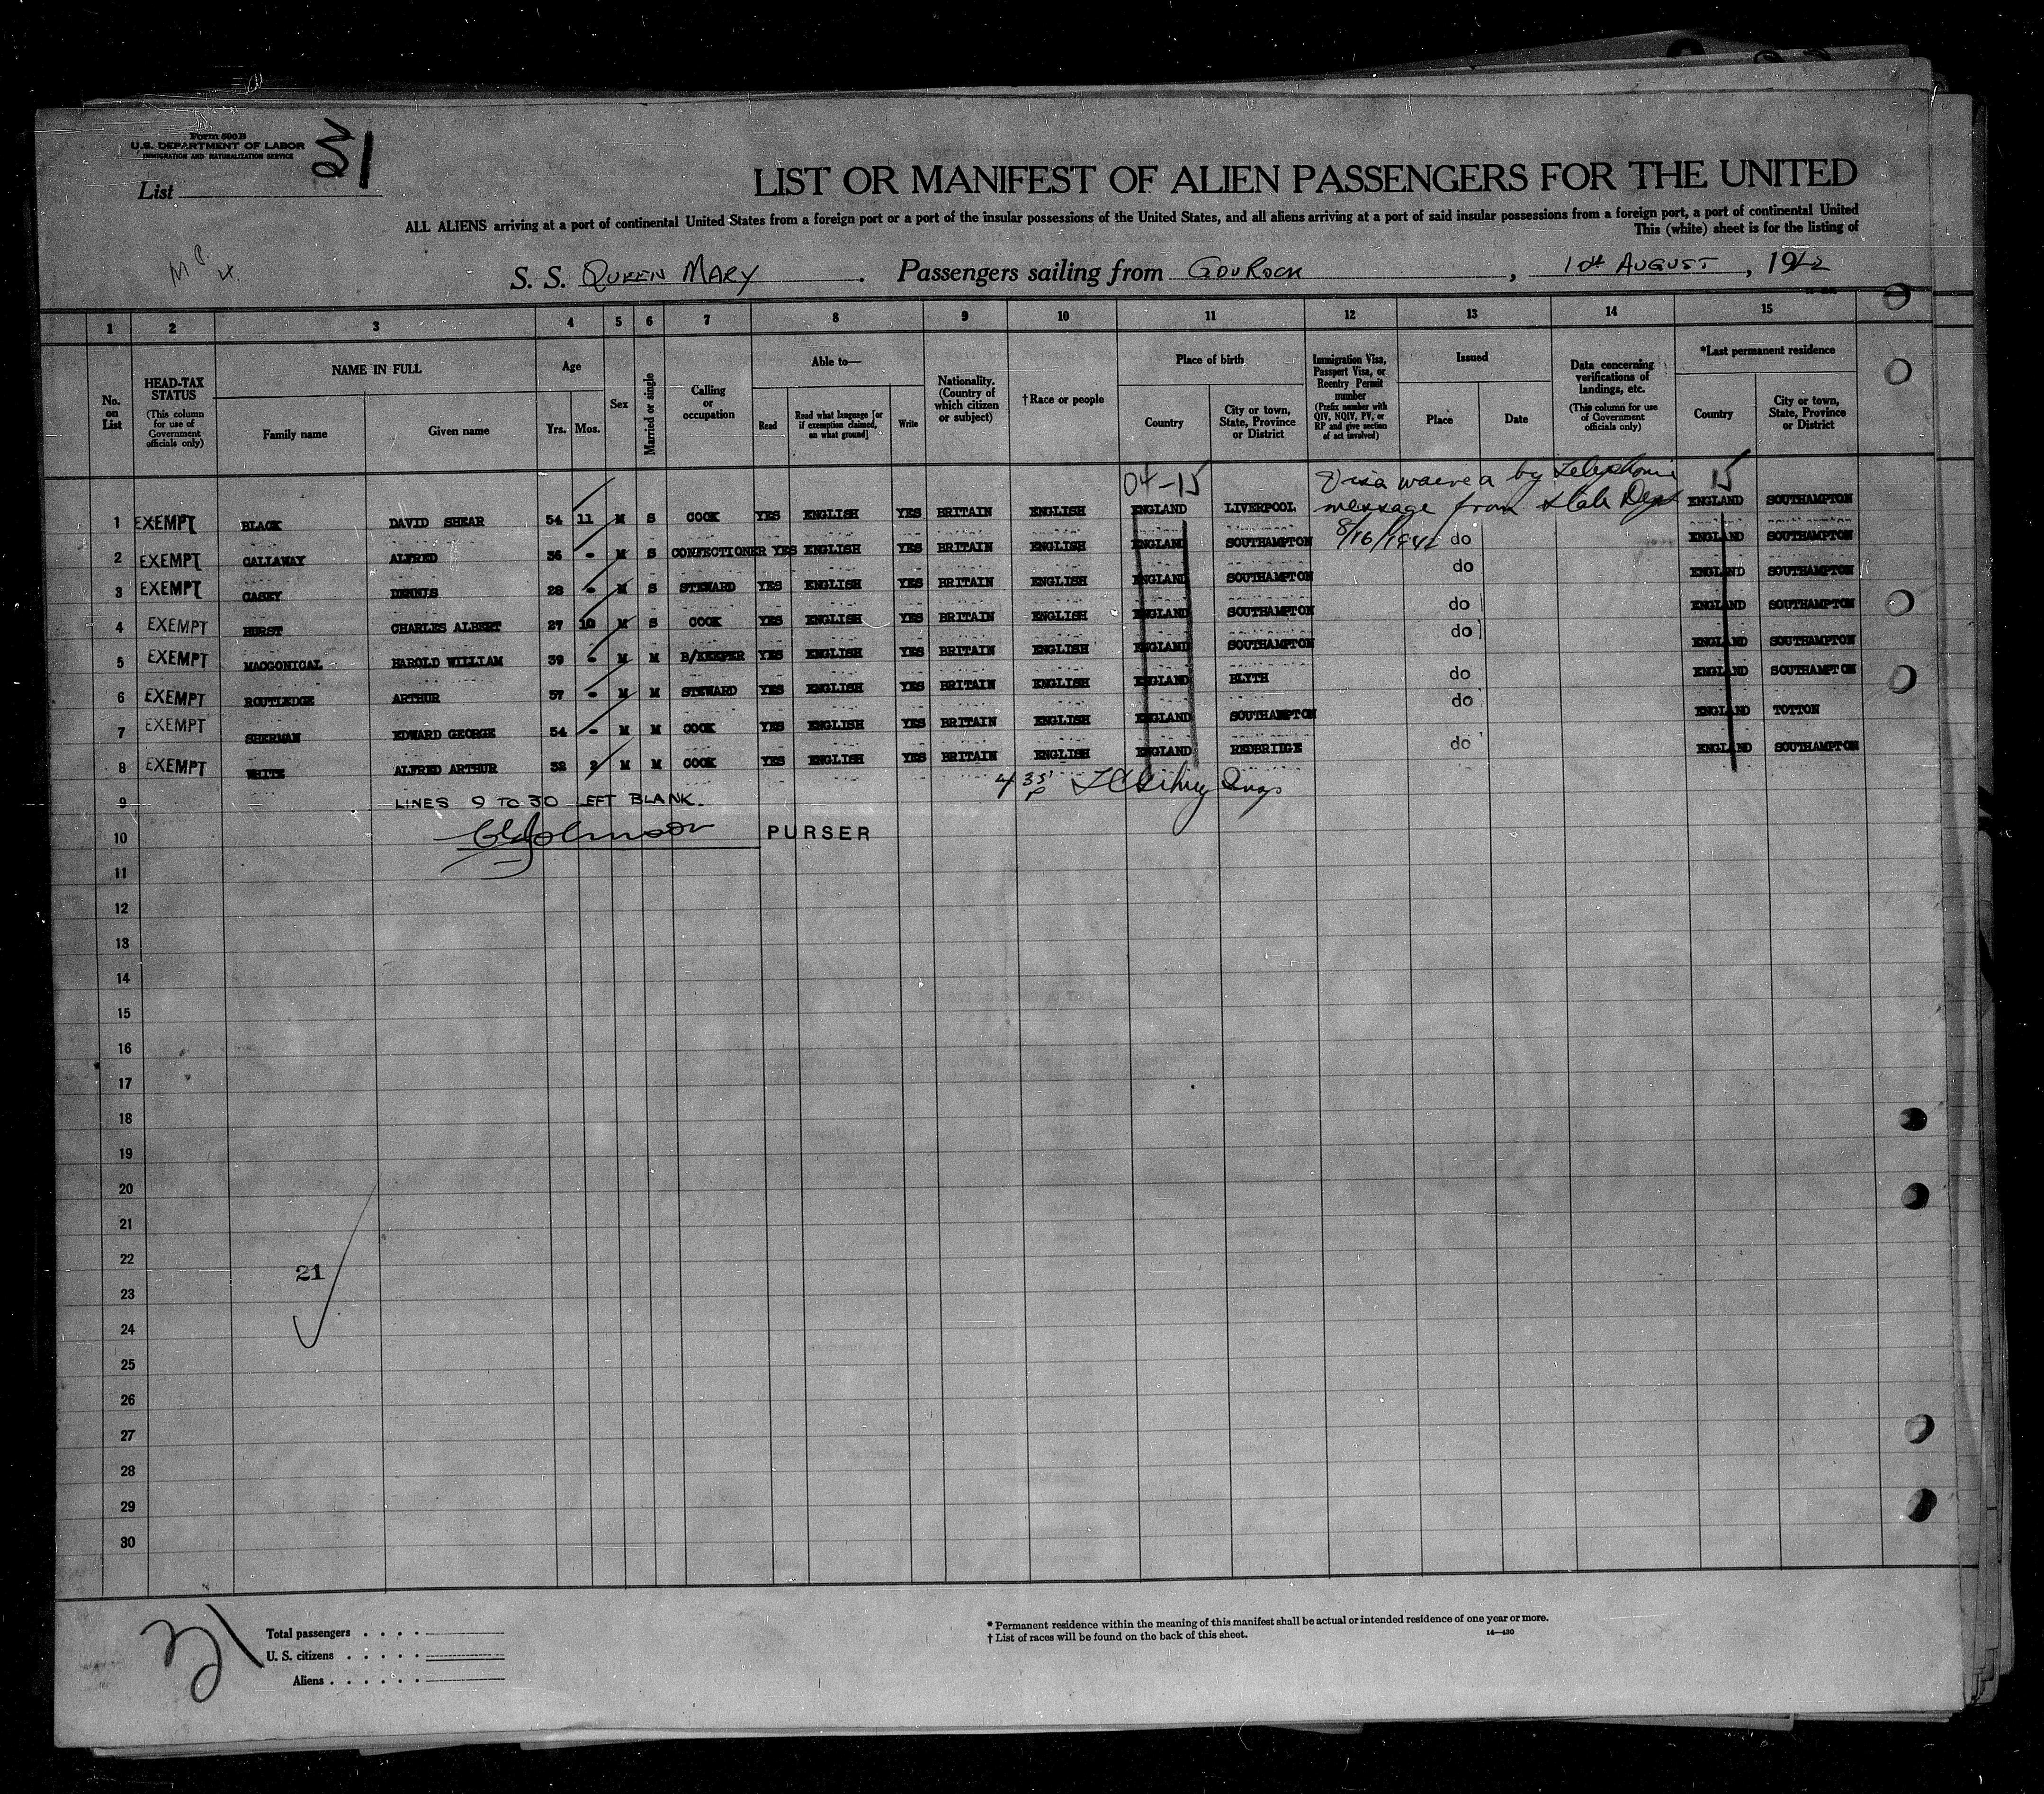 Form 500 B
U.S. DEPARTMENT OF LABOR
IMMIGRATION AND NATURALIZATION SERVICE
List
LIST OR MANIFEST OF ALIEN PASSENGERS FOR THE UNITED
ALL ALIENS arriving at a port of continental United States from a foreign port or a port of the insular possessions of the United States, and all aliens arriving at a port of said insular possessions from a foreign port, a port of continental United
This (white) sheet is for the listing of
S. S. QUEEN MARY . Passengers sailing from GOUROCK , 10th AUGUST , 1942
1 2 3 4 5 6 7 8 9 10 11 12 13 14 15
No. on List
HEAD-TAX STATUS
(This column for use of Government officials only)
NAME IN FULL
Family name Given name
Age
Yrs. Mos.
Sex
Married or single
Calling or occupation
Able to—
Read
Read what language [or if exemption claimed, on what ground]
Write
Nationality. (Country of which citizen or subject)
†Race or people
Place of birth
Country
City or town, State, Province or District
Immigration Visa, Passport Visa, or Reentry Permit number
(Prefix number with QIV, NQIV, PV, or RP and give section of act involved)
Issued
Place Date
Data concerning verifications of landings, etc.
(This column for use of Government officials only)
*Last permanent residence
Country
City or town, State, Province or District
04-15 15
Visa waived by telephonic
message from State Dept
1 EXEMPT BLACK DAVID SHEAR 54 11 M S COOK YES ENGLISH YES BRITAIN ENGLISH ENGLAND LIVERPOOL ENGLAND SOUTHAMPTON
2 EXEMPT CALLAWAY ALFRED 36 - M S CONFECTIONER YES ENGLISH YES BRITAIN ENGLISH ENGLAND SOUTHAMPTON 8/16/1942 do ENGLAND SOUTHAMPTON
3 EXEMPT CASEY DENNIS 28 - M S STEWARD YES ENGLISH YES BRITAIN ENGLISH ENGLAND SOUTHAMPTON do ENGLAND SOUTHAMPTON
4 EXEMPT HURST CHARLES ALBERT 27 10 M S COOK YES ENGLISH YES BRITAIN ENGLISH ENGLAND SOUTHAMPTON do ENGLAND SOUTHAMPTON
5 EXEMPT MACGONIGAL HAROLD WILLIAM 39 - M M B/KEEPER YES ENGLISH YES BRITAIN ENGLISH ENGLAND SOUTHAMPTON do ENGLAND SOUTHAMPTON
6 EXEMPT ROUTLEDGE ARTHUR 57 - M M STEWARD YES ENGLISH YES BRITAIN ENGLISH ENGLAND BLYTH do ENGLAND SOUTHAMPTON
7 EXEMPT SHERMAN EDWARD GEORGE 54 - M M COOK YES ENGLISH YES BRITAIN ENGLISH ENGLAND SOUTHAMPTON do ENGLAND TOTTON
8 EXEMPT WHITE ALFRED ARTHUR 32 2 M M COOK YES ENGLISH YES BRITAIN ENGLISH ENGLAND REDBRIDGE do ENGLAND SOUTHAMPTON
9 LINES 9 TO 30 LEFT BLANK.
10 PURSER
11
12
13
14
15
16
17
18
19
20
21
22
21
23
24
25
26
27
28
29
30
21
Total passengers
U. S. citizens
Aliens
* Permanent residence within the meaning of this manifest shall be actual or intended residence of one year or more.
† List of races will be found on the back of this sheet.
14—430